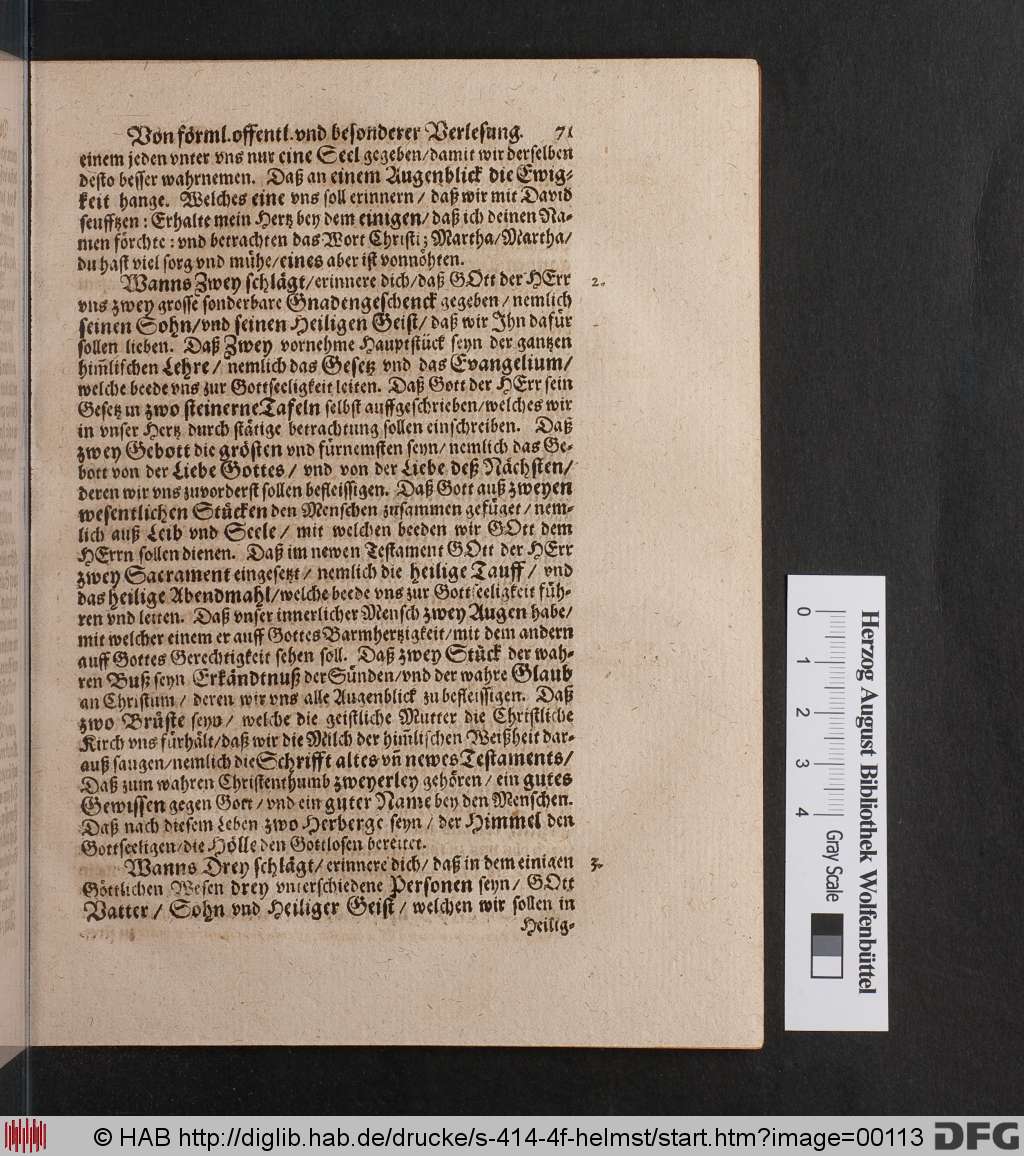 Von förml. offentl. vnd besonderer Verlesung. 71
einem jeden vnter vns nur eine Seel gegeben/damit wir derselben
desto besser wahrnemen. Daß an einem Augenblick die Ewig-
keit hange. Welches eine vns soll erinnern/ daß wir mit David
seufftzen: Erhalte mein Hertz bey dem einigen/ daß ich deinen Na-
men förchte: vnd betrachten das Wort Christi; Martha/Martha/
du hast viel sorg vnd mühe/eines aber ist vonnöhten.
Wanns Zwey schlägt/erinnere dich/daß GOtt der HErr 2.
vns zwey grosse sonderbare Gnadengeschenck gegeben/ nemlich
seinen Sohn/vnd seinen Heiligen Geist/ daß wir Ihn dafür
sollen lieben. Daß Zwey vornehme Hauptstück seyn der gantzen
him̃lischen Lehre/ nemlich das Gesetz vnd das Evangelium/
welche beede vns zur Gottseeligkeit leiten. Daß Gott der HErr sein
Gesetz in zwo steinerne Tafeln selbst auffgeschrieben/welches wir
in vnser Hertz durch stätige betrachtung sollen einschreiben. Daß
zwey Gebott die grösten vnd fürnemsten seyn/ nemlich das Ge-
bott von der Liebe Gottes/ vnd von der Liebe deß Nächsten/
deren wir vns zuvorderst sollen befleissigen. Daß Gott auß zweyen
wesentlichen Stücken den Menschen zusammen gefüget/ nem-
lich auß Leib vnd Seele/ mit welchen beeden wir GOtt dem
HErrn sollen dienen. Daß im newen Testament GOtt der HErr
zwey Sacrament eingesetzt/ nemlich die heilige Tauff/ vnd
das heilige Abendmahl/welche beede vns zur Gottseeligkeit füh-
ren vnd leiten. Daß vnser innerlicher Mensch zwey Augen habe/
mit welcher einem er auff Gottes Barmhertzigkeit/mit dem andern
auff Gottes Gerechtigkeit sehen soll. Daß zwey Stück der wah-
ren Buß seyn Erkändtnuß der Sünden/vnd der wahre Glaub
an Christum/ deren wir vns alle Augenblick zu befleissigen. Daß
zwo Brüste seyn/ welche die geistliche Mutter die Christliche
Kirch vns fürhält/daß wir die Milch der him̃lischen Weißheit dar-
auß saugen/nemlich die Schrifft altes vñ newes Testaments/
Daß zum wahren Christenthumb zweyerley gehören/ ein gutes
Gewissen gegen Gott/ vnd ein guter Name bey den Menschen.
Daß nach diesem Leben zwo Herberge seyn/ der Himmel den
Gottseeligen/die Hölle den Gottlosen bereitet.
Wanns Drey schlägt/ erinnere dich/ daß in dem einigen 3.
Göttlichen Wesen drey vnterschiedene Personen seyn/ GOtt
Vatter/ Sohn vnd Heiliger Geist/ welchen wir sollen in
Heilig-
0 1 2 3 4
Herzog August Bibliothek Wolfenbüttel
Gray Scale
© HAB http://diglib.hab.de/drucke/s-414-4f-helmst/start.htm?image=00113 DFG